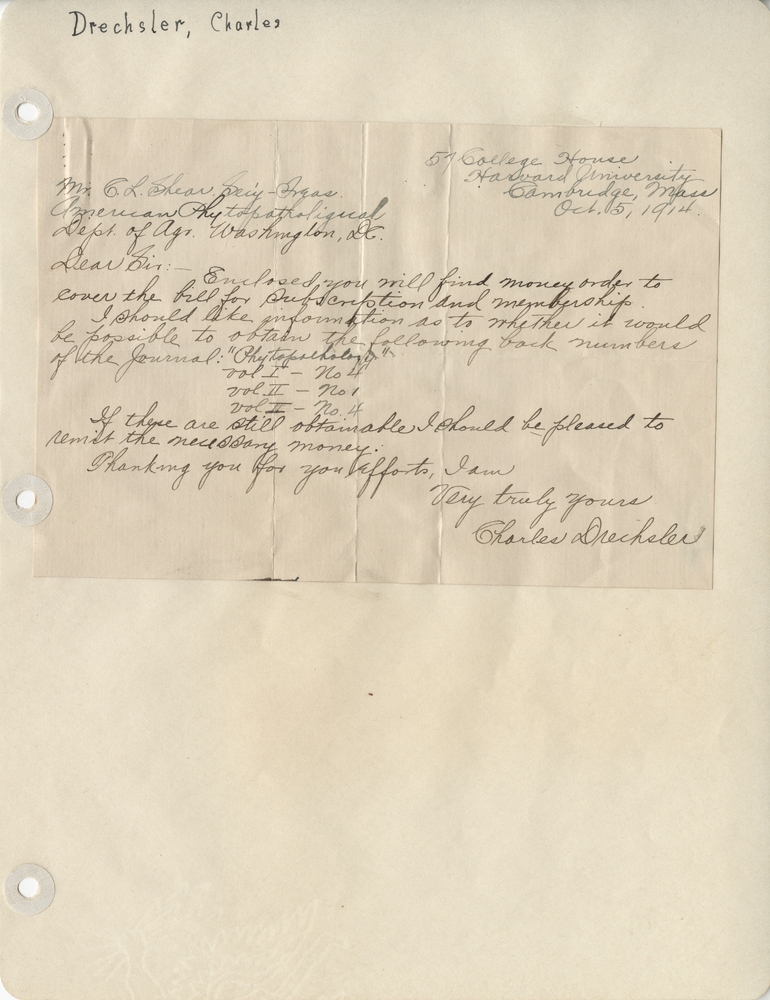 Drechsler, Charles
57 College House
Harvard University
Cambridge, Mass
Oct. 5, 1914.
Mr. C. L. Shear, Sec'y-Treas.
American Phytopathological
Dept. of Agr. Washington, D.C.
Dear Sir: —
Enclosed you will find money order to
cover the bill for subscription and membership.
I should like information as to whether it would
be possible to obtain the following back numbers
of the Journal: "Phytopathology"
vol I – No 4
vol II – No 1
vol II – No. 4
If these are still obtainable I should be pleased to
remit the necessary money.
Thanking you for you efforts, I am
Very truly yours
Charles Drechsler